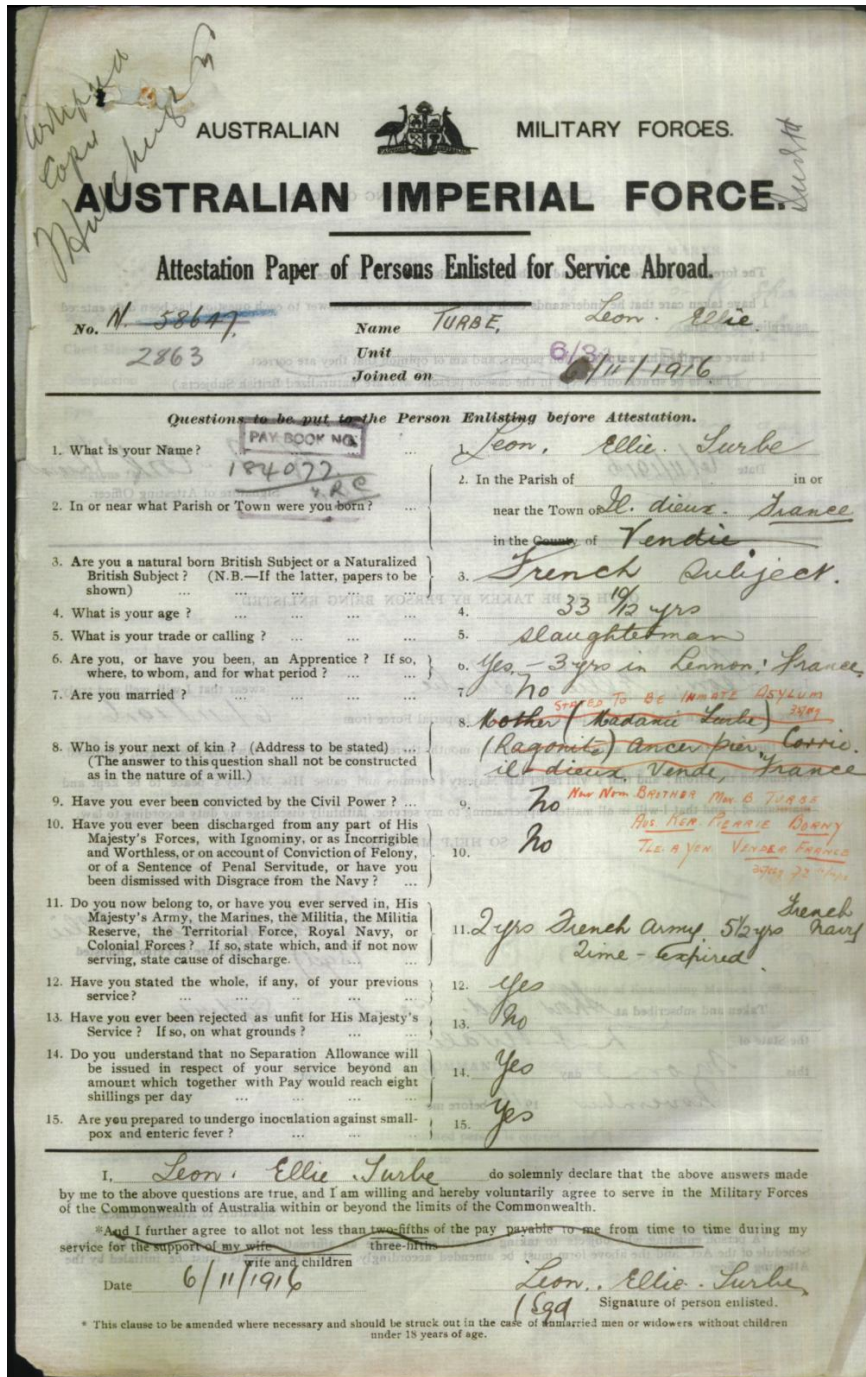 Certified
Copy
AUSTRALIAN MILITARY FORCES.
AUSTRALIAN IMPERIAL FORCE.
Attestation Paper of Persons Enlisted for Service Abroad.
No. N. 58647. Name TURBE, Leon. Ellie.
2863 Unit 6/3
Joined on 6/11/1916
Questions to be put to the Person Enlisting before Attestation.
PAY BOOK NO.
184077
1. What is your Name? ... ... 1. Leon. Ellie. Turbe
2. In or near what Parish or Town were you born? ... 2. In the Parish of in or
near the Town of Il. dieux. France
in the County of Vendie
3. Are you a natural born British Subject or a Naturalized
British Subject? (N.B.—If the latter, papers to be
shown) ... ... ... ... 3. French Subject.
4. What is your age? ... ... ... 4. 33 10/12 yrs
5. What is your trade or calling? ... ... ... 5. Slaughterman
6. Are you, or have you been, an Apprentice? If so,
where, to whom, and for what period? ... ... 6. Yes, – 3 yrs in Lennon: France
7. Are you married? ... ... ... ... 7. No
STATED TO BE INMATE ASYLUM
8. Who is your next of kin? (Address to be stated) ...
(The answer to this question shall not be constructed
as in the nature of a will.)
8. Mother (Madame Turbe)
(Ragonite) Ancer pier, Corrie.
il-dieux, Vende, France
9. Have you ever been convicted by the Civil Power? ... 9. No
Now Nom BROTHER Mon. B. TURBE
Aus Ker. PIERRIE BORNY
ILE. A YEN. VENDEA FRANCE
10. Have you ever been discharged from any part of His
Majesty's Forces, with Ignominy, or as Incorrigible
and Worthless, or on account of Conviction of Felony,
or of a Sentence of Penal Servitude, or have you
been dismissed with Disgrace from the Navy? ... 10. No
11. Do you now belong to, or have you ever served in, His
Majesty's Army, the Marines, the Militia, the Militia
Reserve, the Territorial Force, Royal Navy, or
Colonial Forces? If so, state which, and if not now
serving, state cause of discharge. ... ...
11. 2 yrs French Army 5½ yrs French Navy
Time – expired
12. Have you stated the whole, if any, of your previous
service? ... ... ... ... ... 12. Yes
13. Have you ever been rejected as unfit for His Majesty's
Service? If so, on what grounds? ... ... 13. No
14. Do you understand that no Separation Allowance will
be issued in respect of your service beyond an
amount which together with Pay would reach eight
shillings per day ... ... ... ... 14. Yes
15. Are you prepared to undergo inoculation against small-
pox and enteric fever? ... ... ... 15. Yes
I, Leon. Ellie. Turbe do solemnly declare that the above answers made
by me to the above questions are true, and I am willing and hereby voluntarily agree to serve in the Military Forces
of the Commonwealth of Australia within or beyond the limits of the Commonwealth.
*And I further agree to allot not less than two-fifths of the pay payable to me from time to time during my
three-fifths
service for the support of my wife
wife and children
Date 6/11/1916 Leon. Ellie. Turbe
(Sgd Signature of person enlisted.
* This clause to be amended where necessary and should be struck out in the case of unmarried men or widowers without children
under 18 years of age.